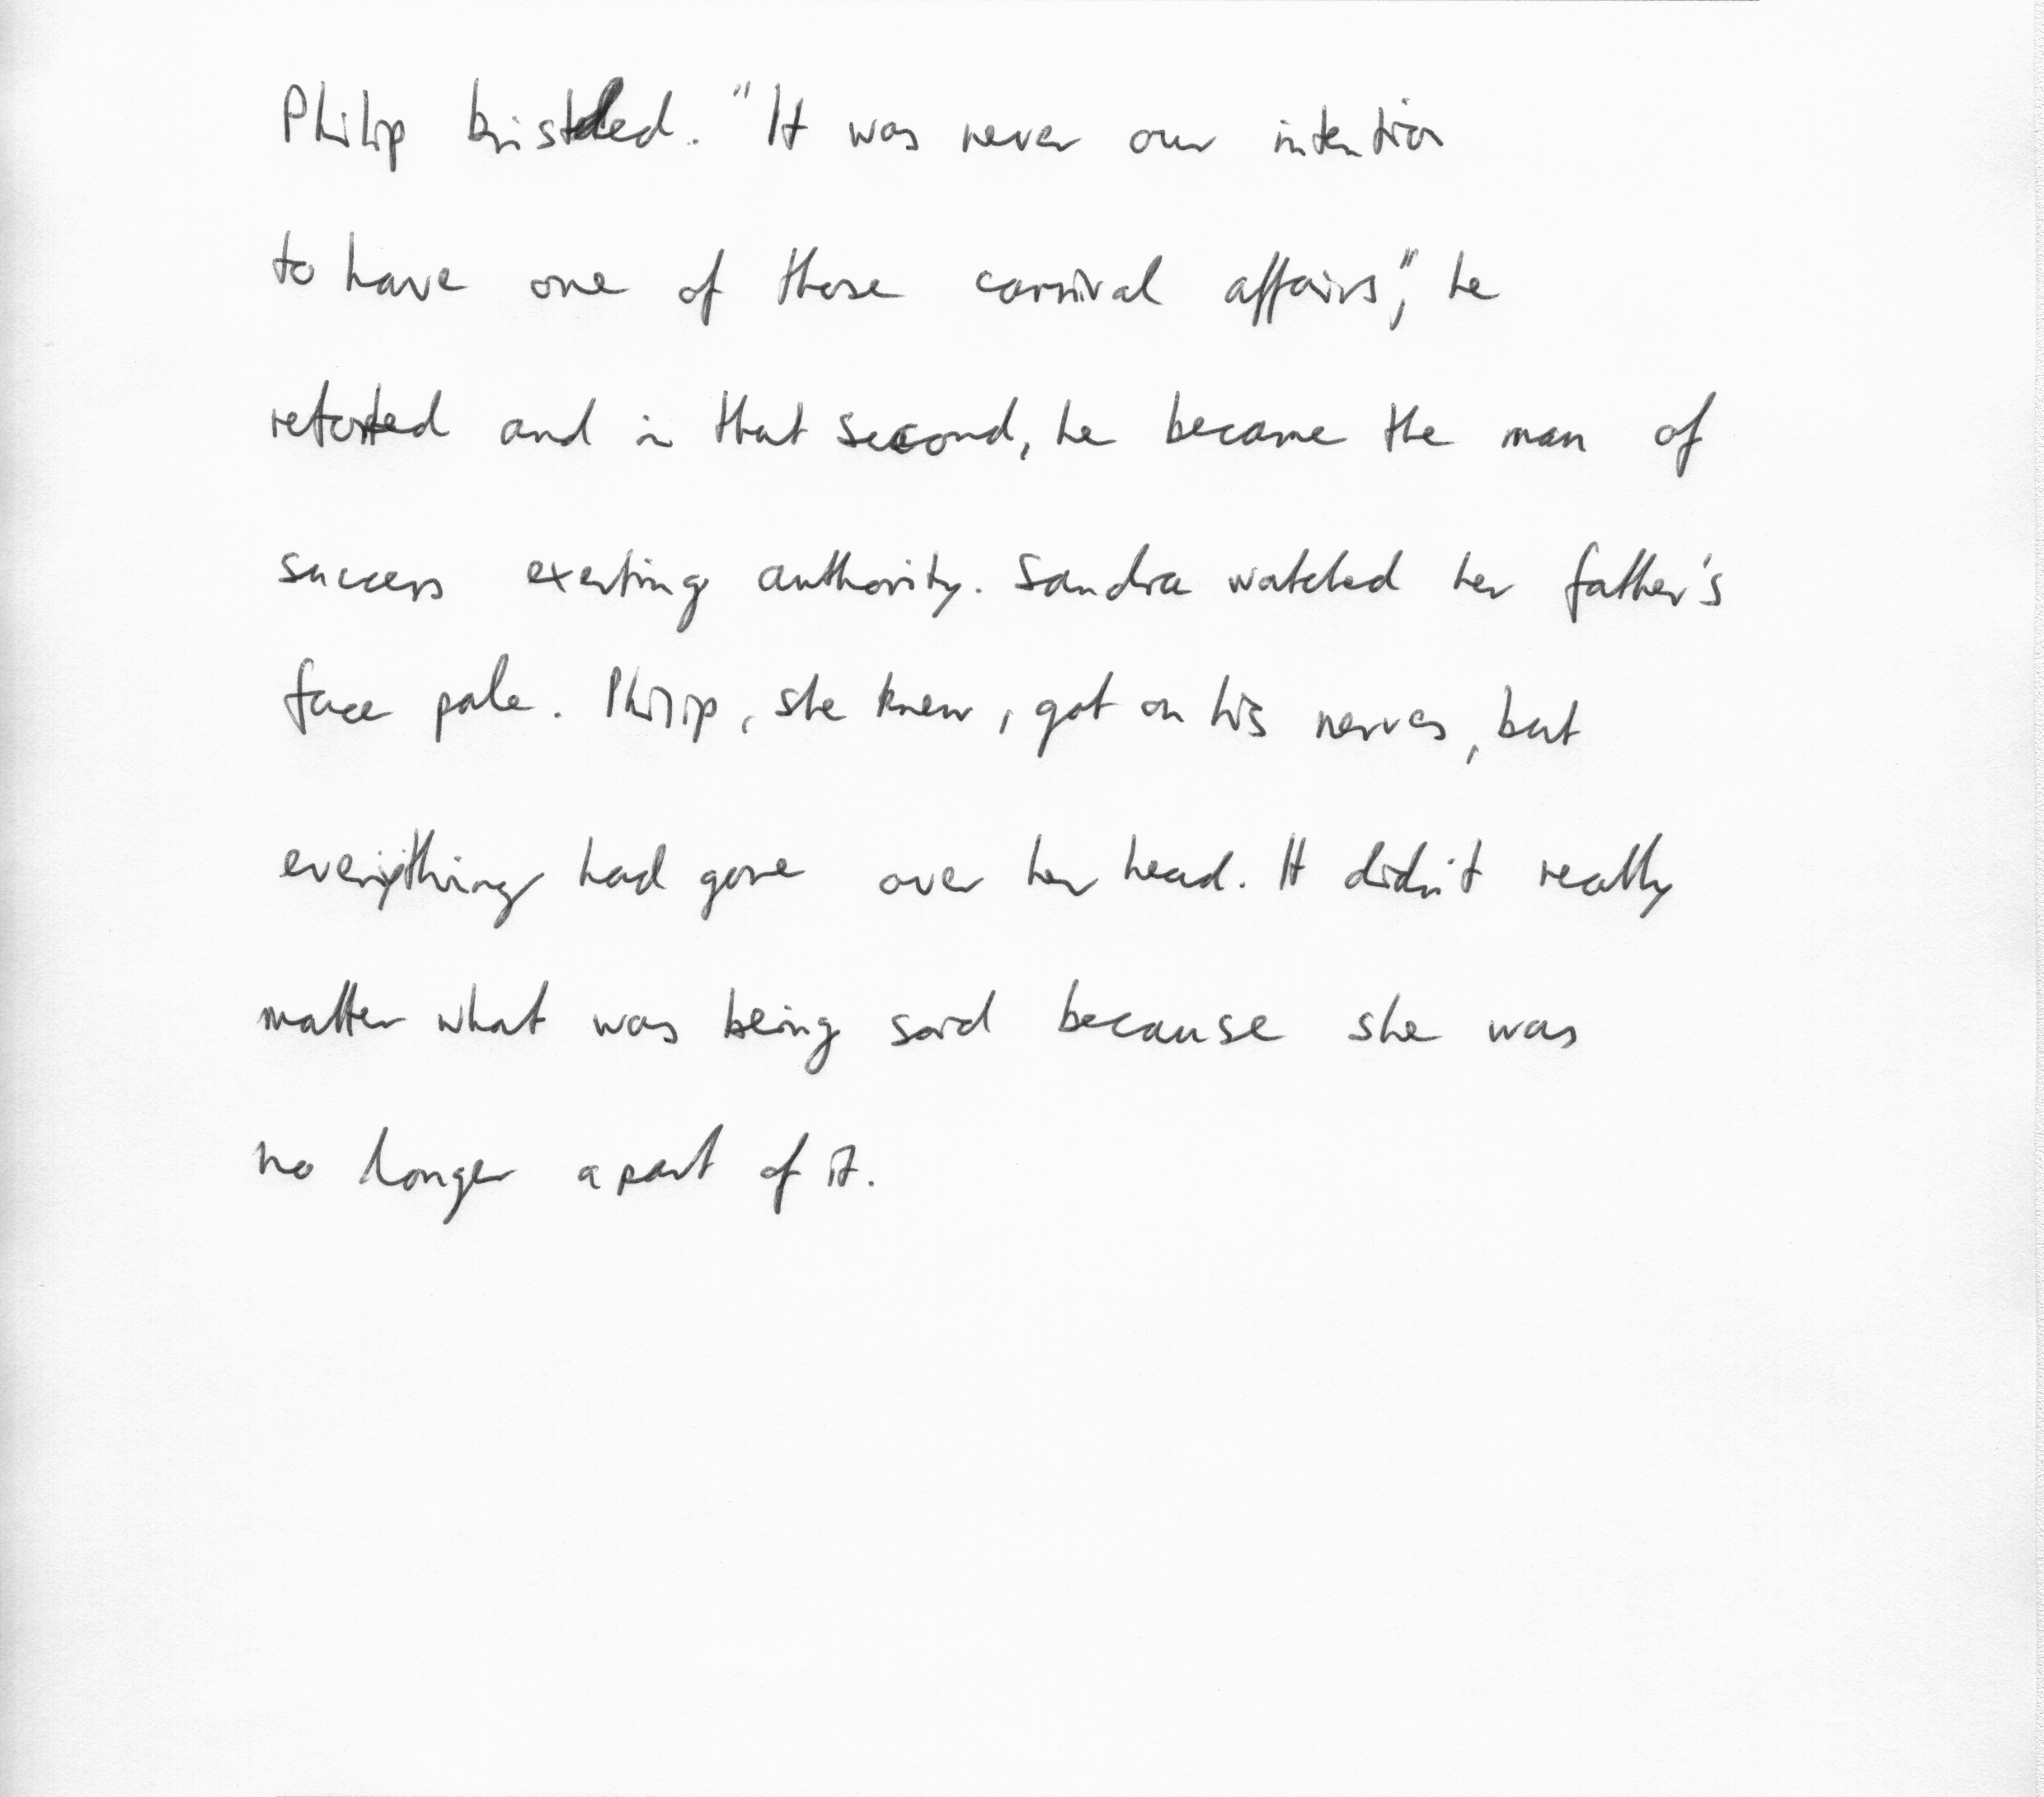 Philip bristled. "It was never our intention
to have one of those carnival affairs," he
retorted and in that second, he became the man of
success exerting authority. Sandra watched her father's
face pale. Philip, she knew, got on his nerves, but
everything had gone over her head. It didn't really
matter what was being said because she was
no longer a part of it.